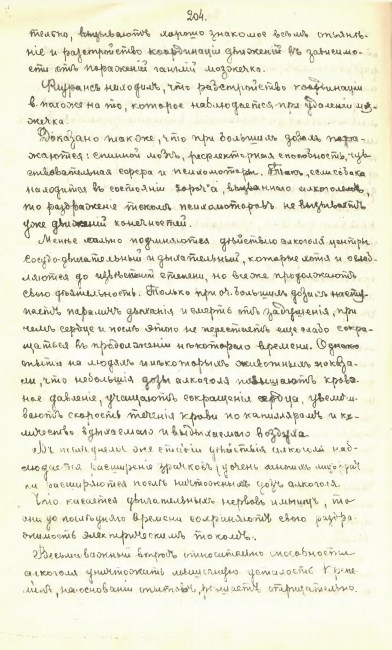 204.
тельно, вызываютъ хорошо знакомое всѣмъ опьянѣ-
ніе и разстройство координаціи движеній въ зависимо-
сти отъ пораженій ганглій мозжечка.
Флурансъ находилъ, что разстройство координаціи
похоже на то, которое наблюдается при удаленіи мо-
жечка.
Доказано также, что при большихъ дозахъ пора-
жаются: спинной мозгъ, рефлекторная способность, чув-
ствовательная сфера и психомоторы. Такъ, если собака
находится въ состояніи вызваннаго алкоголемъ,
то раздраженіе токомъ психомоторовъ не вызываетъ
уже движеній конечностей.
Менѣе сильно подчиняются дѣйствію алкоголя центры
сосудо-двигательный и дыхательный, которые хотя и
до извѣстной степени, но все же продолжаютъ
свою дѣятельность. Только при оч. большихъ дозахъ насту-
паетъ параличъ дыханія и смерть отъ задушенія, при
чемъ сердце и послѣ этого не перестаетъ еще слабо сокра-
щаться въ продолженіи нѣкотораго времени. Однако
опыты на людяхъ и нѣкоторыхъ животныхъ показа-
ли, что небольшія дозы алкоголя повышаютъ кровя-
ное давленіе, учащаютъ сокращенія сердца, увеличи-
ваютъ скорость теченія крови по капиллярамъ и ко-
личество вдыхаемаго и выдыхаемаго воздуха.
Въ послѣднемъ же стадіи дѣйствія алкоголя наб-
людается расширеніе зрачковъ, у очень многихъ
расширяются послѣ ничтожныхъ дозъ алкоголя.
Что касается двигательныхъ нервовъ и мышцъ, то
они до послѣдняго времени сохраняютъ свою раздра-
жимость электрическимъ токомъ.
Весьма важный вопросъ относительно способности
алкоголя уничтожать мышечную усталость
на основаніи опытовъ, рѣшается отрицательно.